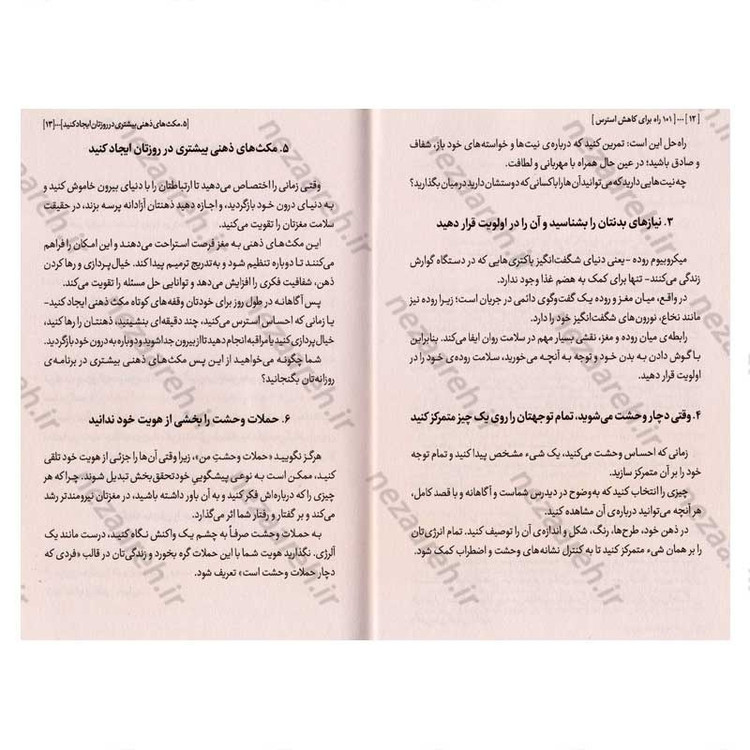 [ ۱۲ ] --- [ ۱۰۱ راه برای کاهش استرس ]
راه‌حل این است: تمرین کنید که درباره‌ی نیت‌ها و خواسته‌های خود باز، شفاف
و صادق باشید؛ در عین حال همراه با مهربانی و لطافت.
چه نیت‌هایی دارید که می‌توانید آن‌ها را با کسانی که دوستشان دارید در میان بگذارید؟
۳. نیازهای بدنتان را بشناسید و آن را در اولویت قرار دهید
میکروبیوم روده -یعنی دنیای شگفت‌انگیز باکتری‌هایی که در دستگاه گوارش
زندگی می‌کنند- تنها برای کمک به هضم غذا وجود ندارد.
در واقع، میان مغز و روده یک گفت‌وگوی دائمی در جریان است؛ زیرا روده نیز
مانند نخاع، نورون‌های شگفت‌انگیز خود را دارد.
رابطه‌ی میان روده و مغز، نقشی بسیار مهم در سلامت روان ایفا می‌کند. بنابراین
با گوش دادن به بدن خود و توجه به آنچه می‌خورید، سلامت روده‌ی خود را در
اولویت قرار دهید.
۴. وقتی دچار وحشت می‌شوید، تمام توجهتان را روی یک چیز متمرکز کنید
زمانی که احساس وحشت می‌کنید، یک شیء مشخص پیدا کنید و تمام توجه
خود را بر آن متمرکز سازید.
چیزی را انتخاب کنید که به‌وضوح در دیدرس شماست و آگاهانه و با قصد کامل،
هر آنچه می‌توانید درباره‌ی آن مشاهده کنید.
در ذهن خود، طرح‌ها، رنگ، شکل و اندازه‌ی آن را توصیف کنید. تمام انرژی‌تان
را بر همان شیء متمرکز کنید تا به کنترل نشانه‌های وحشت و اضطراب کمک شود.
[۵. مکث‌های ذهنی بیشتری در روزتان ایجاد کنید]---[۱۳]
۵. مکث‌های ذهنی بیشتری در روزتان ایجاد کنید
وقتی زمانی را اختصاص می‌دهید تا ارتباطتان را با دنیای بیرون خاموش کنید و
به دنیای درون خود بازگردید، و اجازه دهید ذهنتان آزادانه پرسه بزند، در حقیقت
سلامت مغزتان را تقویت می‌کنید.
این مکث‌های ذهنی به مغز فرصت استراحت می‌دهند و این امکان را فراهم
می‌کنند تا دوباره تنظیم شود و به‌تدریج ترمیم پیدا کند. خیال‌پردازی و رها کردن
ذهن، شفافیت فکری را افزایش می‌دهد و توانایی حل مسئله را تقویت می‌کند.
پس آگاهانه در طول روز برای خودتان وقفه‌های کوتاه مکث ذهنی ایجاد کنید-
یا زمانی که احساس استرس می‌کنید، چند دقیقه‌ای بنشینید، ذهنتان را رها کنید،
خیال‌پردازی کنید یا مراقبه انجام دهید تا از بیرون جدا شوید و دوباره به درون خود بازگردید.
شما چگونه می‌خواهید از این پس مکث‌های ذهنی بیشتری در برنامه‌ی
روزانه‌تان بگنجانید؟
۶. حملات وحشت را بخشی از هویت خود ندانید
هرگز نگویید «حملات وحشتِ من»، زیرا وقتی آن‌ها را جزئی از هویت خود تلقی
کنید، ممکن است به نوعی پیشگوییِ خودتحقق‌بخش تبدیل شوند. چرا که هر
چیزی را که درباره‌اش فکر کنید و به آن باور داشته باشید، در مغزتان نیرومندتر رشد
می‌کند و بر گفتار و رفتار شما اثر می‌گذارد.
به حملات وحشت صرفاً به چشم یک واکنش نگاه کنید، درست مانند یک
آلرژی. نگذارید هویت شما با این حملات گره بخورد و زندگی‌تان در قالب «فردی که
دچار حملات وحشت است» تعریف شود.
nezaareh.ir